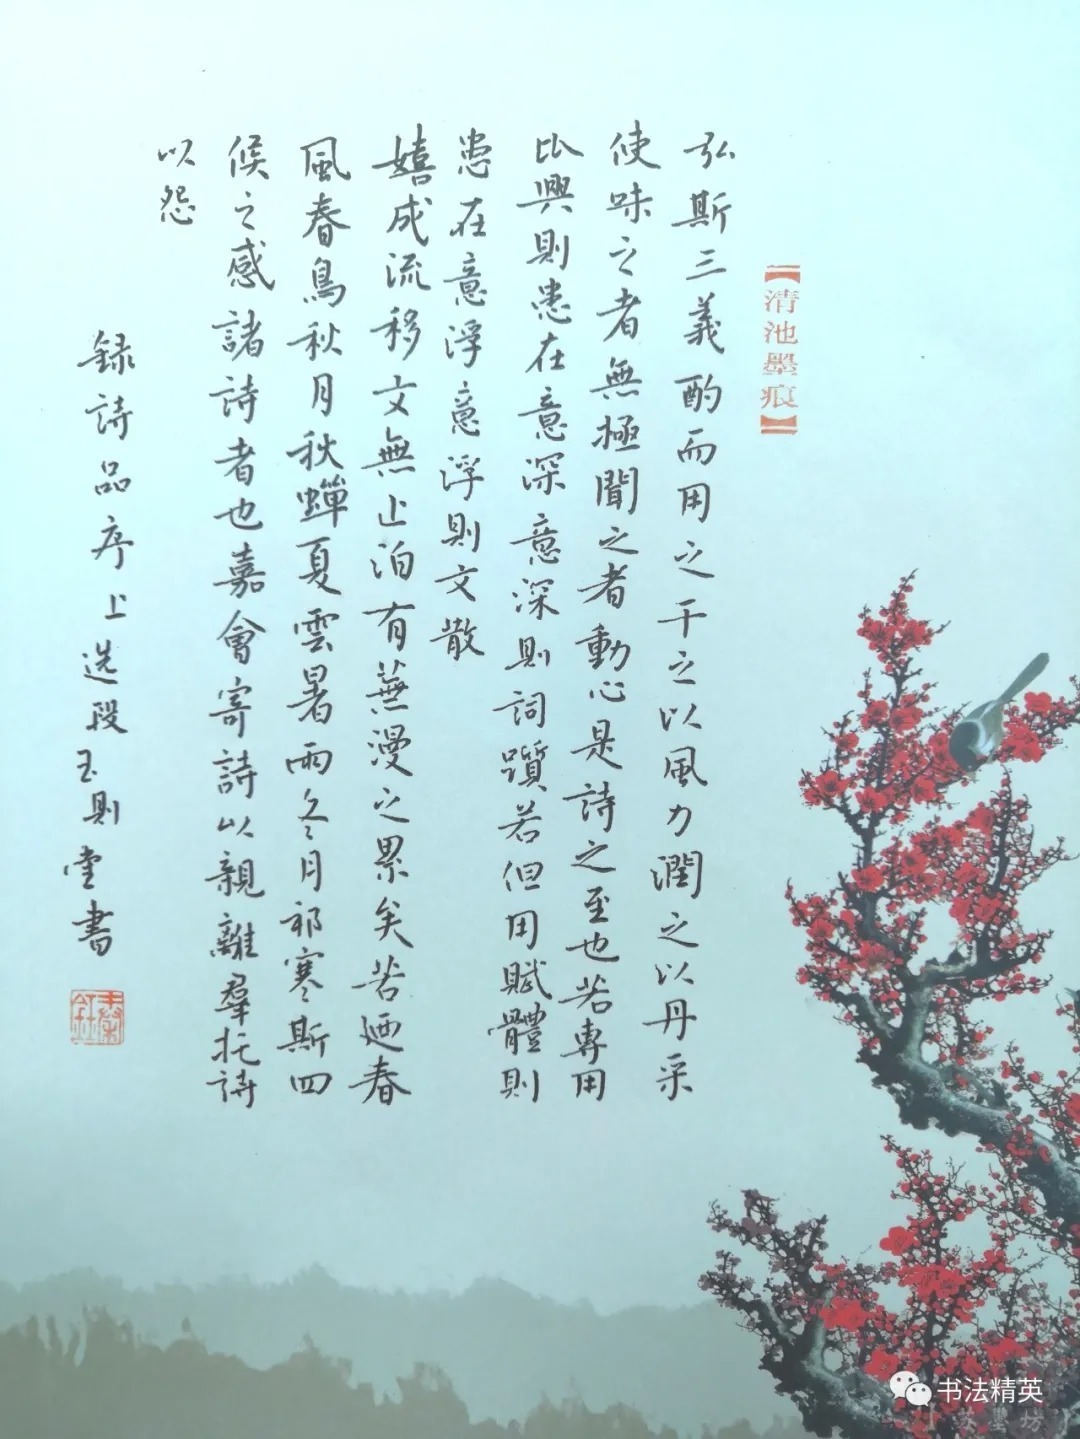 【清池墨痕】
弘斯三義酌而用之干之以風力潤之以丹采
使味之者無極聞之者動心是詩之至也若專用
比興則患在意深意深則詞躓若但用賦體則
患在意浮意浮則文散
嬉成流移文無止泊有蕪漫之累矣若迺春
風春鳥秋月秋蟬夏雲暑雨冬月祁寒斯四
候之感諸詩者也嘉會寄詩以親離羣托詩
以怨
録詩品序上选段玉則堂書
书法精英